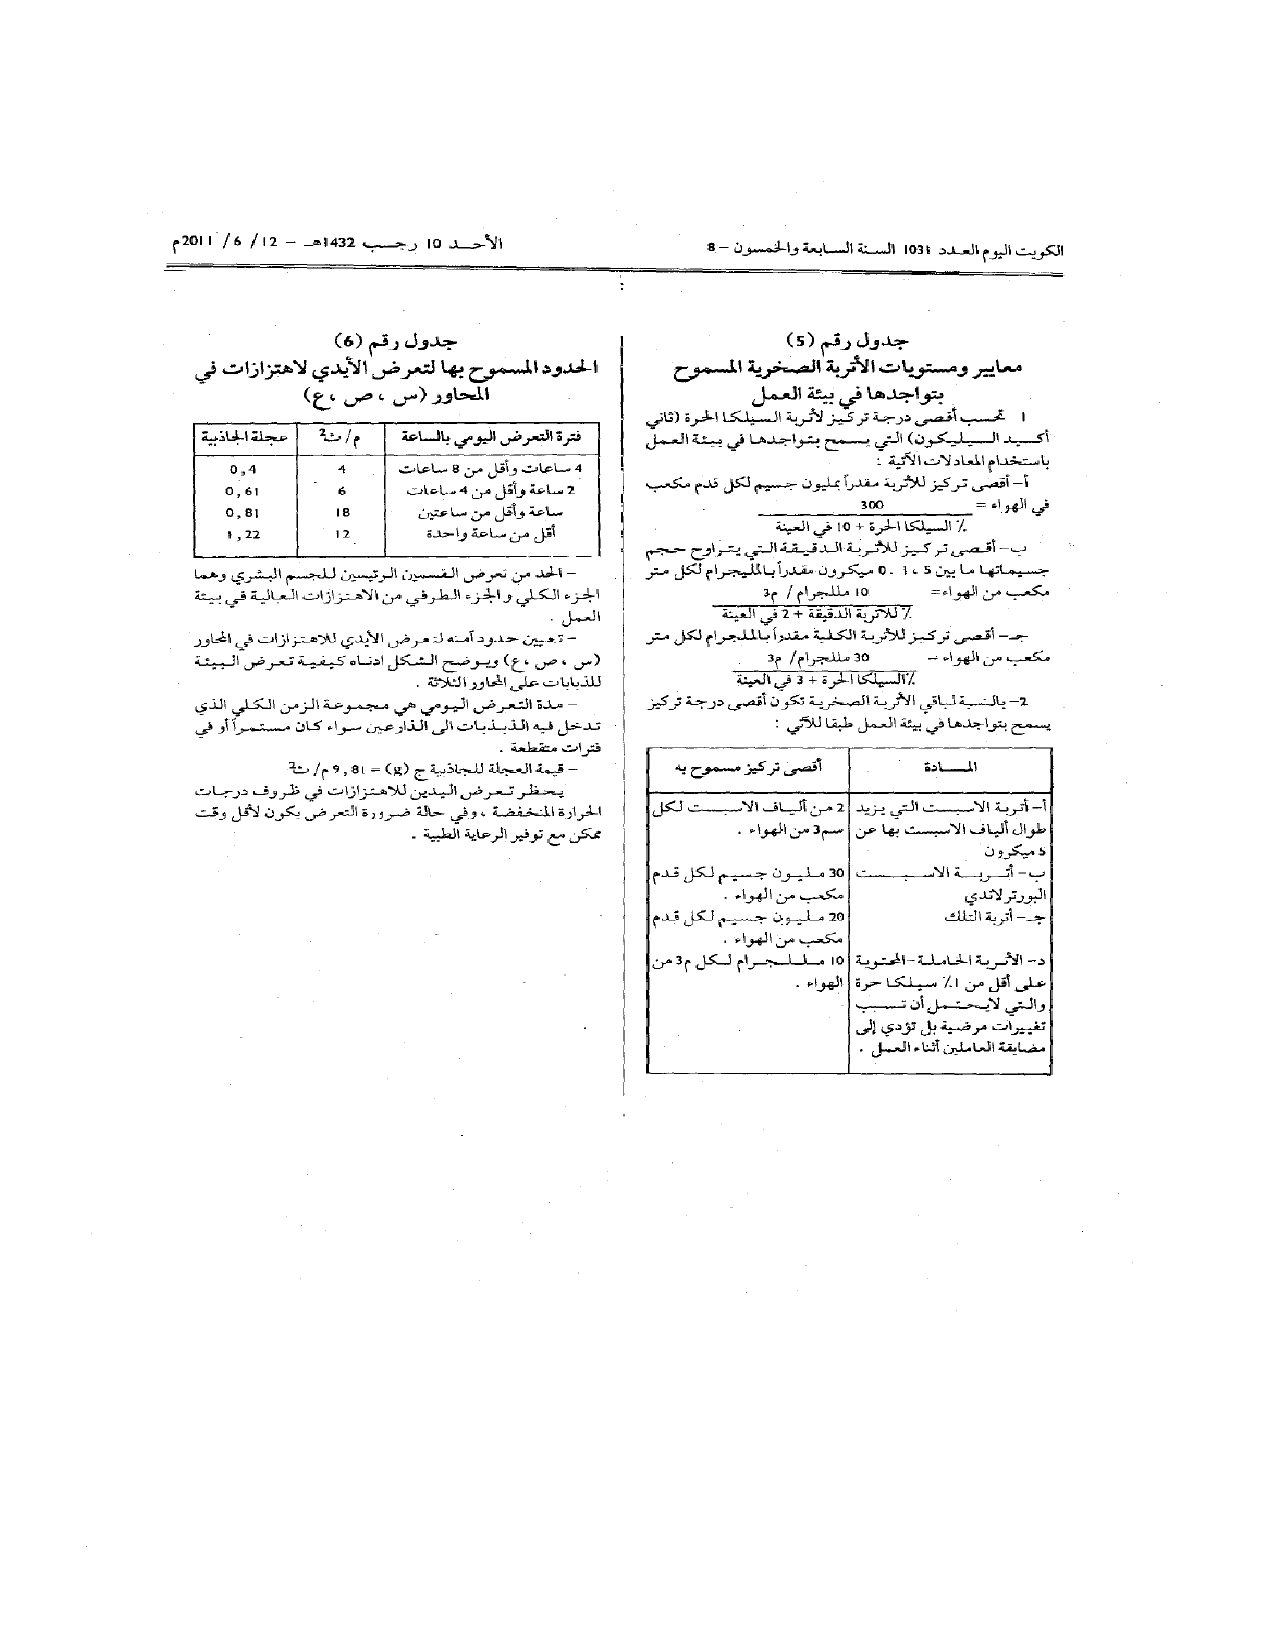 الكويت اليوم العدد 1031 السنة السابعة والخمسون – 8
الأحد 10 رجب 1432هـ – 12 / 6 / 2011م
جدول رقم (5)
معايير ومستويات الأتربة الصخرية المسموح
بتواجدها في بيئة العمل
1 تحسب أقصى درجة تركيز لأتربة السيلكا الحرة (ثاني
أكسيد السيليكون) التي يسمح بتواجدها في بيئة العمل
باستخدام المعادلات الآتية :
أ– أقصى تركيز للأتربة مقدراً بمليون جسيم لكل قدم مكعب
في الهواء = 300
٪ السيلكا الحرة + 10 في العينة
ب– أقصى تركيز للأتربة الدقيقة التي يتراوح حجم
جسيماتها ما بين 5 ، 1 . 0 ميكرون مقدراً بالمليجرام لكل متر
مكعب من الهواء = 10 مللجرام / م3
٪ للأتربة الدقيقة + 2 في العينة
جـ– أقصى تركيز للأتربة الكلية مقدراً بالمللجرام لكل متر
مكعب من الهواء – 30 مللجرام/ م3
٪السيلكا الحرة + 3 في العينة
2– بالنسبة لباقي الأتربة الصخرية تكون أقصى درجة تركيز
يسمح بتواجدها في بيئة العمل طبقا للآتي :
المــادة أقصى تركيز مسموح به
أ– أتربة الاسبست التي يزيد 2 من ألياف الاسبست لكل
طوال ألياف الاسبست بها عن سم3 من الهواء .
5 ميكرون
ب– أتربة الاسمنت 30 مليون جسيم لكل قدم
البورتر لاندي مكعب من الهواء .
جـ– أتربة التلك 20 مليون جسيم لكل قدم
مكعب من الهواء .
د– الأتربة الخاملة –المحتوية 10 مللجرام لكل م3 من
على أقل من 1٪ سيلكا حرة الهواء .
والتي لا يحتمل أن تسبب
تغييرات مرضية بل تؤدي إلى
مضايقة العاملين أثناء العمل .
جدول رقم (6)
الحدود المسموح بها لتعرض الأيدي لاهتزازات في
المحاور (س ، ص ، ع)
فترة التعرض اليومي بالساعة م/ ث2 عجلة الجاذبية
4 ساعات وأقل من 8 ساعات 4 0,4
2 ساعة وأقل من 4 ساعات 6 0,61
ساعة وأقل من ساعتين 18 0,81
أقل من ساعة واحدة 12 1,22
– الحد من تعرض القسمين الرئيسين للجسم البشري وهما
الجزء الكلي و الجزء الطرفي من الاهتزازات العالية في بيئة
العمل .
– تعيين حدود آمنه لتعرض الأيدي للاهتزازات في المحاور
(س ، ص ، ع) ويوضح الشكل ادناه كيفية تعرض البيئة
للذبابات على المحاور الثلاثة .
– مدة التعرض اليومي هي مجموعة الزمن الكلي الذي
تدخل فيه الذبذبات الى الذارعين سواء كان مستمراً أو في
فترات متقطعة .
– قيمة العجلة للجاذبية ج (g) = 9,81 م/ ث2
يحظر تعرض اليدين للاهتزازات في ظروف درجات
الحرارة المنخفضة ، وفي حالة ضرورة التعرض يكون لأقل وقت
ممكن مع توفير الرعاية الطبية .